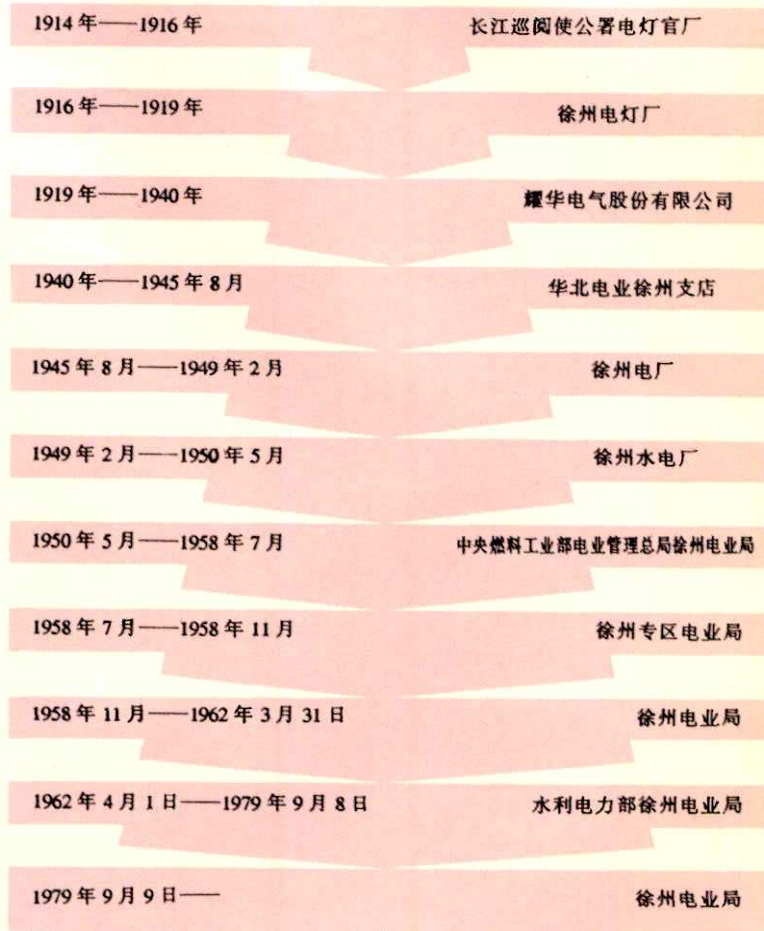 1914年——1916年 长江巡阅使公署电灯官厂
1916年——1919年 徐州电灯厂
1919年——1940年 耀华电气股份有限公司
1940年——1945年8月 华北电业徐州支店
1945年8月——1949年2月 徐州电厂
1949年2月——1950年5月 徐州水电厂
1950年5月——1958年7月 中央燃料工业部电业管理总局徐州电业局
1958年7月——1958年11月 徐州专区电业局
1958年11月——1962年3月31日 徐州电业局
1962年4月1日——1979年9月8日 水利电力部徐州电业局
1979年9月9日—— 徐州电业局